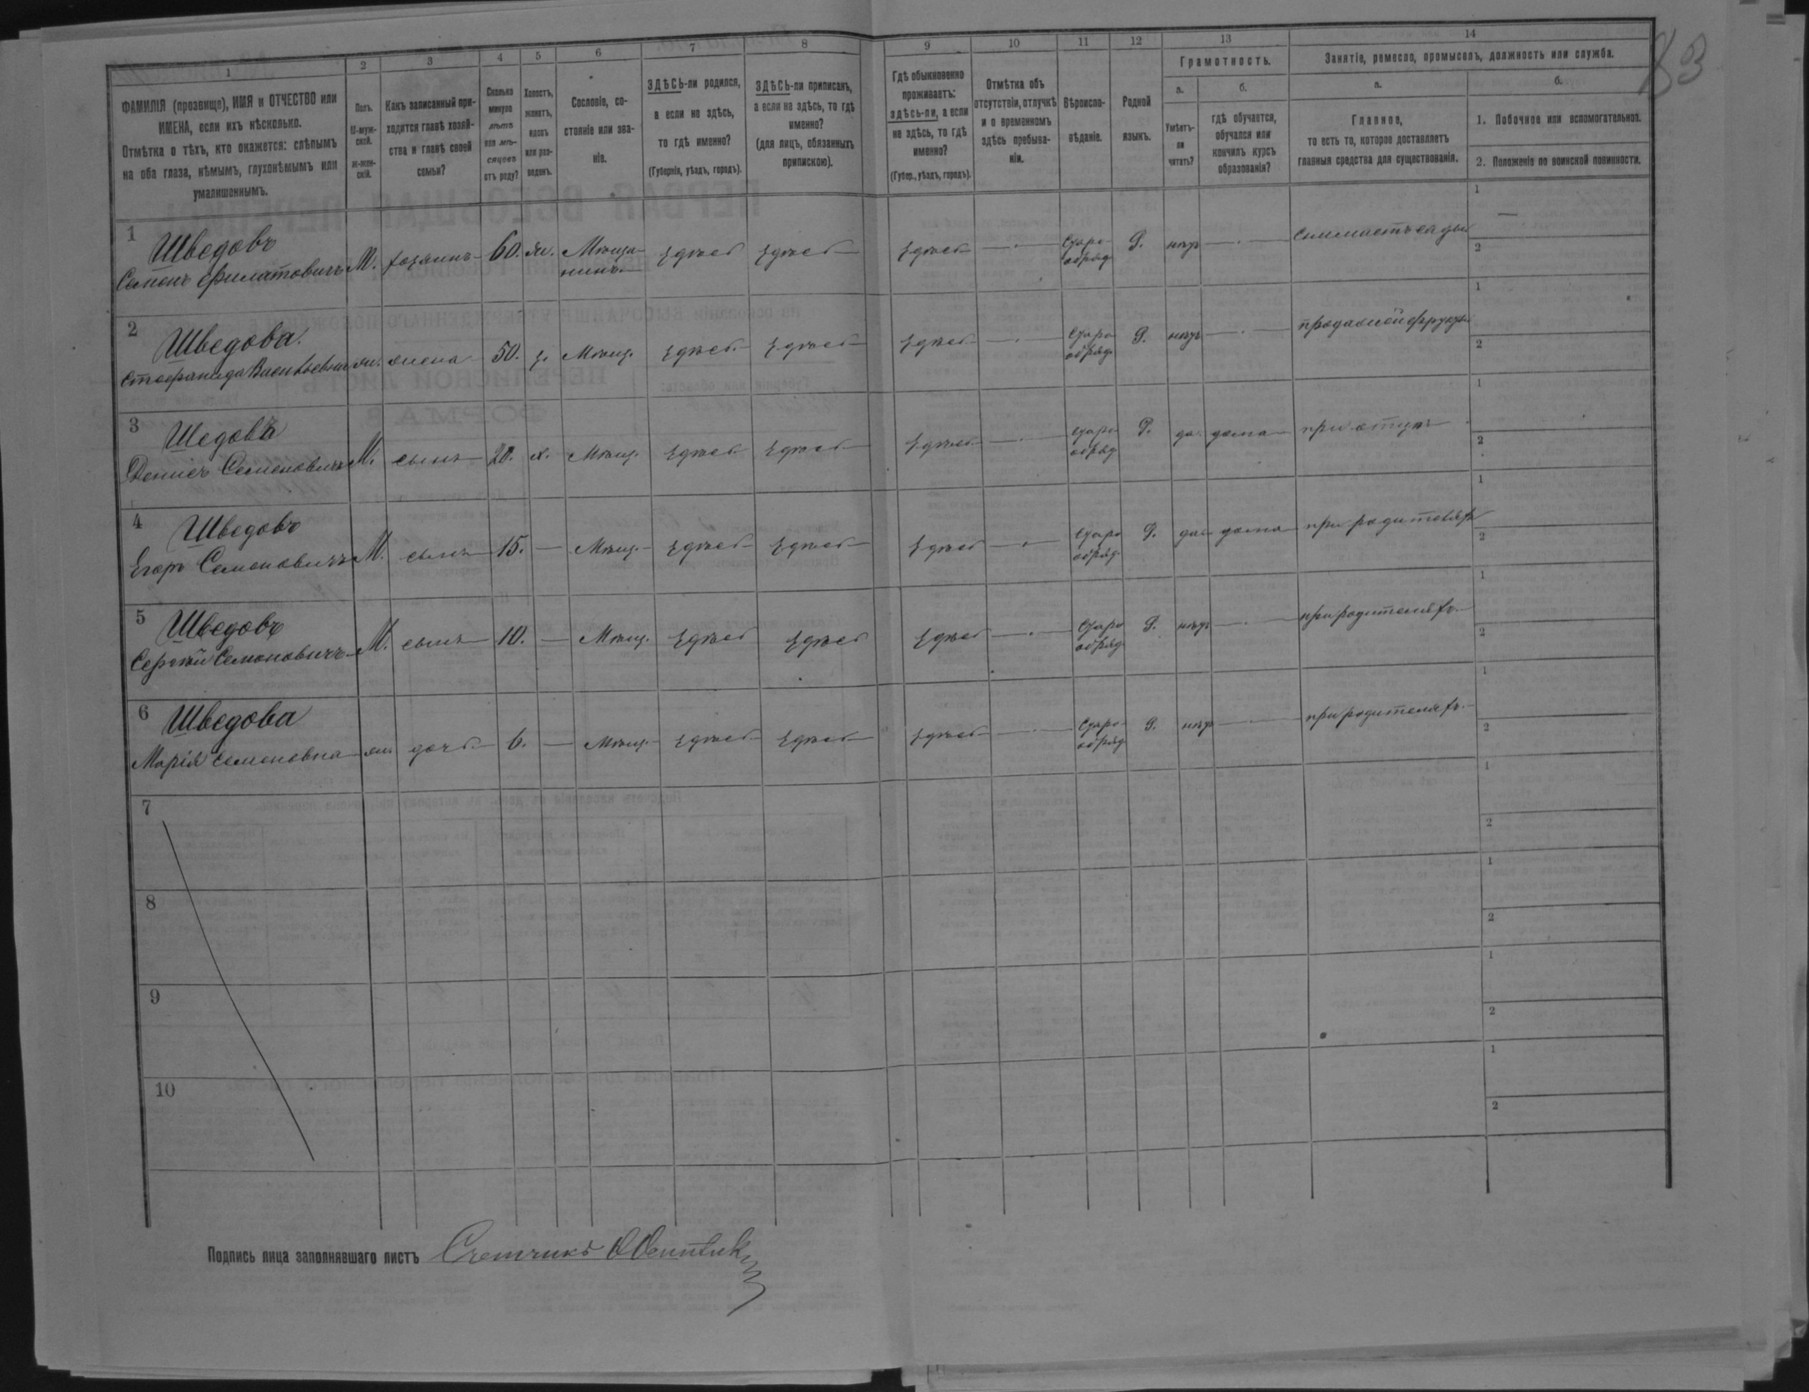 83
1 2 3 4 5 6 7 8 9 10 11 12 13 14
ФАМИЛІЯ (прозвище), ИМЯ и ОТЧЕСТВО или
ИМЕНА, если ихъ нѣсколько.
Отмѣтка о тѣхъ, кто окажется: слѣпымъ
на оба глаза, нѣмымъ, глухонѣмымъ или
умалишеннымъ.
Полъ.
М-муж-
ской.
Ж-жен-
скій.
Какъ записанный при-
ходится главѣ хозяй-
ства и главѣ своей
семьи?
Сколько
минуло
лѣтъ
или мѣ-
сяцевъ
отъ роду?
Холостъ,
женатъ,
вдовъ
или раз-
веденъ.
Сословіе, со-
стояніе или зва-
ніе.
ЗДѢСЬ-ли родился,
а если не здѣсь,
то гдѣ именно?
(Губернія, уѣздъ, городъ).
ЗДѢСЬ-ли приписанъ,
а если не здѣсь, то гдѣ
именно?
(для лицъ, обязанныхъ
припискою).
Гдѣ обыкновенно
проживаетъ:
здѣсь-ли, а если
не здѣсь, то гдѣ
именно?
(Губер., уѣздъ, городъ).
Отмѣтка объ
отсутствіи, отлучкѣ
и о временномъ
здѣсь пребыва-
ніи.
Вѣроиспо-
вѣданіе.
Родной
языкъ.
Грамотность.
а.
Умѣетъ-
ли
читать?
б.
гдѣ обучается,
обучался или
кончилъ курсъ
образованія?
Занятіе, ремесло, промыселъ, должность или служба.
а.
Главное,
то есть то, которое доставляетъ
главныя средства для существованія.
б.
1. Побочное или вспомогательное.
2. Положеніе по воинской повинности.
1 Шведовъ
Семенъ Филатовичъ М. хозяинъ 60. ж. Мѣща-
нинъ здѣсь здѣсь здѣсь — старо-
обряд. Р. нѣтъ —
2 Шведова.
Васильевна ж. жена 50. з. Мѣщ. здѣсь здѣсь здѣсь — старо-
обряд. Р. нѣтъ —
3 Шедовъ
Семеновичъ М. сынъ 20. х. Мѣщ. здѣсь здѣсь здѣсь — старо-
обряд. Р. да дома при отцѣ
4 Шведовъ
Егоръ Семеновичъ М. сынъ 15. — Мѣщ. здѣсь здѣсь здѣсь — старо-
обряд. Р. да дома при родителяхъ
5 Шведовъ
Сергѣй Семеновичъ М. сынъ 10. — Мѣщ. здѣсь здѣсь здѣсь — старо-
обряд. Р. нѣтъ — при родителяхъ.
6 Шведова
Марія Семеновна ж. дочь 6. — Мѣщ. здѣсь здѣсь здѣсь — старо-
обряд. Р. нѣтъ — при родителяхъ.
7
8
9
10
Подпись лица заполнявшаго листъ Счетчикъ